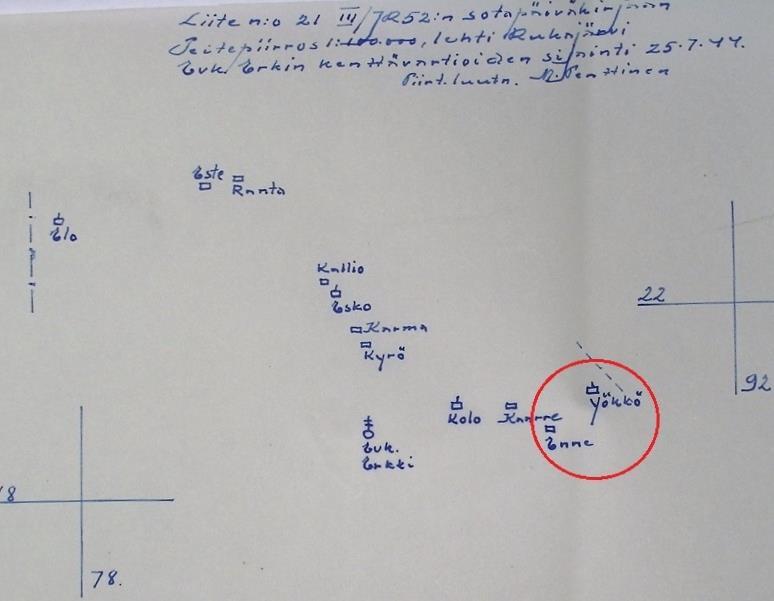 Liite n:o 21 III/JR52:n sotapäiväkirjaan
Peitepiirros 1:100.000, lehti Rukajärvi
Tuk. Erkin kenttävartioiden sijainti 25.7.44.
Piirt. luutn. M. Penttinen
Este
Ranta
Elo
Kallio
Esko
22
Karma
Kyrö
92
Yökkö
Kolo
Kaarre
Enne
Tuk.
Erkki
18
78.